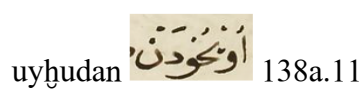 uyḫudan اُويْخُودَنْ 138a.11